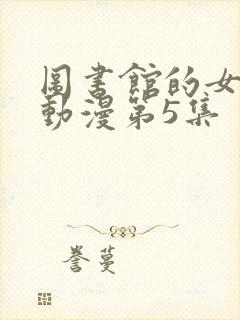 圖書館的女
動漫第5集
譽蔓